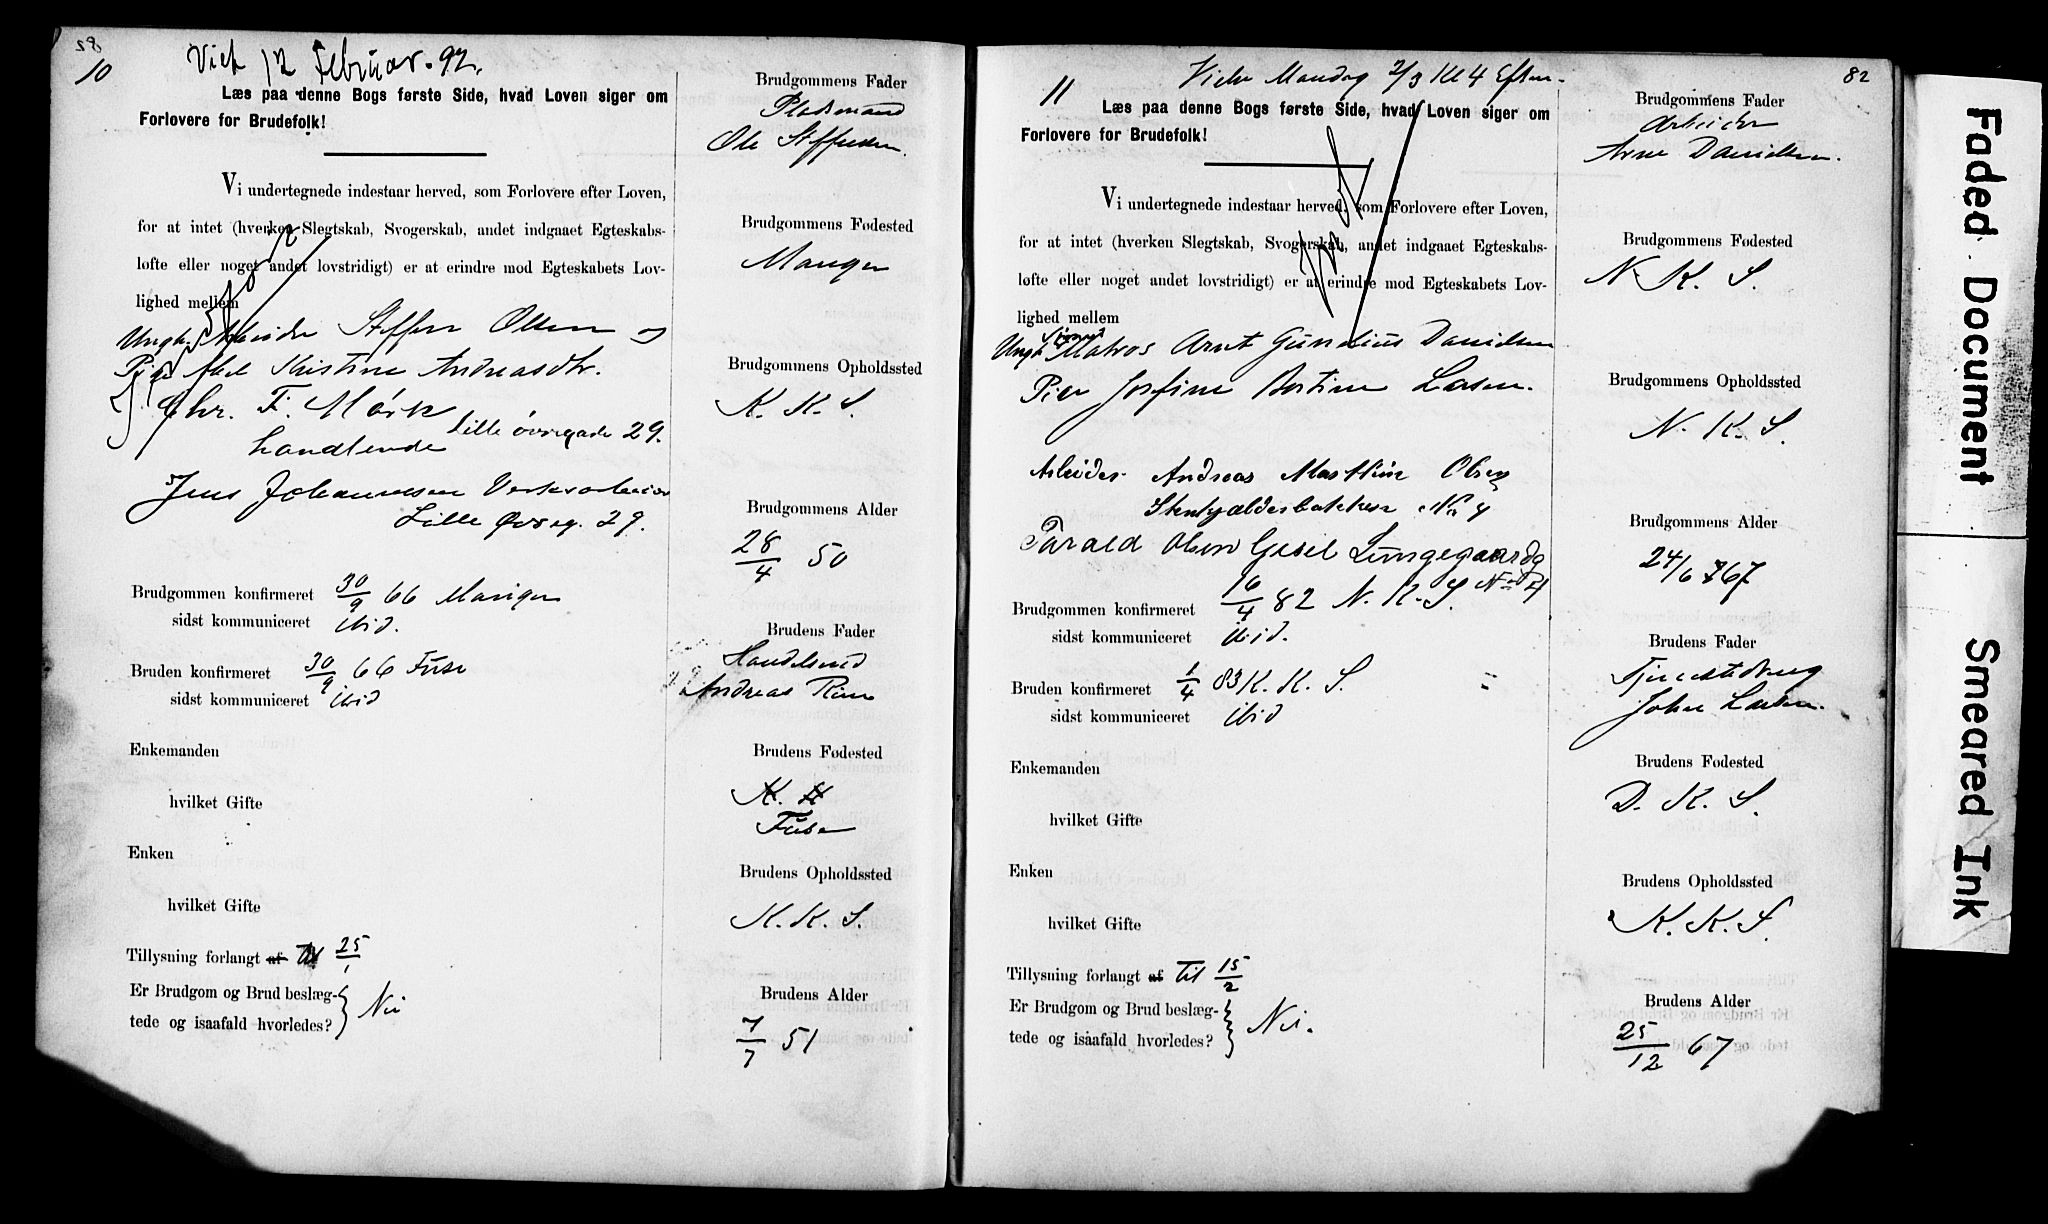 10
Viet 12 Februar. 92.
Læs paa denne Bogs første Side, hvad Loven siger om
Forlovere for Brudefolk!
Vi undertegnede indestaar herved, som Forlovere efter Loven,
for at intet (hverken Slegtskab, Svogerskab, andet indgaaet Egteskabs-
løfte eller noget andet lovstridigt) er at erindre mod Egteskabets Lov-
lighed mellem
Ungk. Arbeider Steffen Olsen og
Pige Abel Kristine Andreasdtr.
Chr. F. Mörk
Handlende Lille övregade 29.
Jens Johannesen Verksarbeider
Lille Øvreg. 29.
Brudgommen konfirmeret 30/9 66 Manger
sidst kommuniceret ibid.
Bruden konfirmeret 30/9 66 Fuse
sidst kommuniceret ibid
Enkemanden
hvilket Gifte
Enken
hvilket Gifte
Tillysning forlangt af til 25/1
Er Brudgom og Brud beslæg-
tede og isaafald hvorledes? Nei
Brudgommens Fader
Pladsmand
Ole Steffensen.
Brudgommens Fødested
Manger
Brudgommens Opholdssted
K. K. S.
Brudgommens Alder
28/4 50
Brudens Fader
Handelsmd
Andreas
Brudens Fødested
Fuse
Brudens Opholdssted
K. K. S.
Brudens Alder
7/7 51
82
11
Vies Mandag 2/3 Kl 4 Efterm.
Læs paa denne Bogs første Side, hvad Loven siger om
Forlovere for Brudefolk!
Vi undertegnede indestaar herved, som Forlovere efter Loven,
for at intet (hverken Slegtskab, Svogerskab, andet indgaaet Egteskabs-
løfte eller noget andet lovstridigt) er at erindre mod Egteskabets Lov-
lighed mellem
Ungk Matros Arnt Gunelius Danielsen
Pige Josefine Bertine Larsen.
Arbeider Andreas Marthin Olsen
Stenkjælderbakken No 4
Tarald Olsen Lungegaardg
Brudgommen konfirmeret 16/4 82 N. K. S.
sidst kommuniceret ibid.
Bruden konfirmeret 1/4 83 K. K. S.
sidst kommuniceret ibid
Enkemanden
hvilket Gifte
Enken
hvilket Gifte
Tillysning forlangt af til 15/2
Er Brudgom og Brud beslæg-
tede og isaafald hvorledes? Nei.
Brudgommens Fader
Arbeider
Arne Danielsen.
Brudgommens Fødested
N. K. S.
Brudgommens Opholdssted
N. K. S.
Brudgommens Alder
24/6 67
Brudens Fader
John Larsen.
Brudens Fødested
D. K. S.
Brudens Opholdssted
K. K. S.
Brudens Alder
25/12 67
Faded Document
Smeared Ink